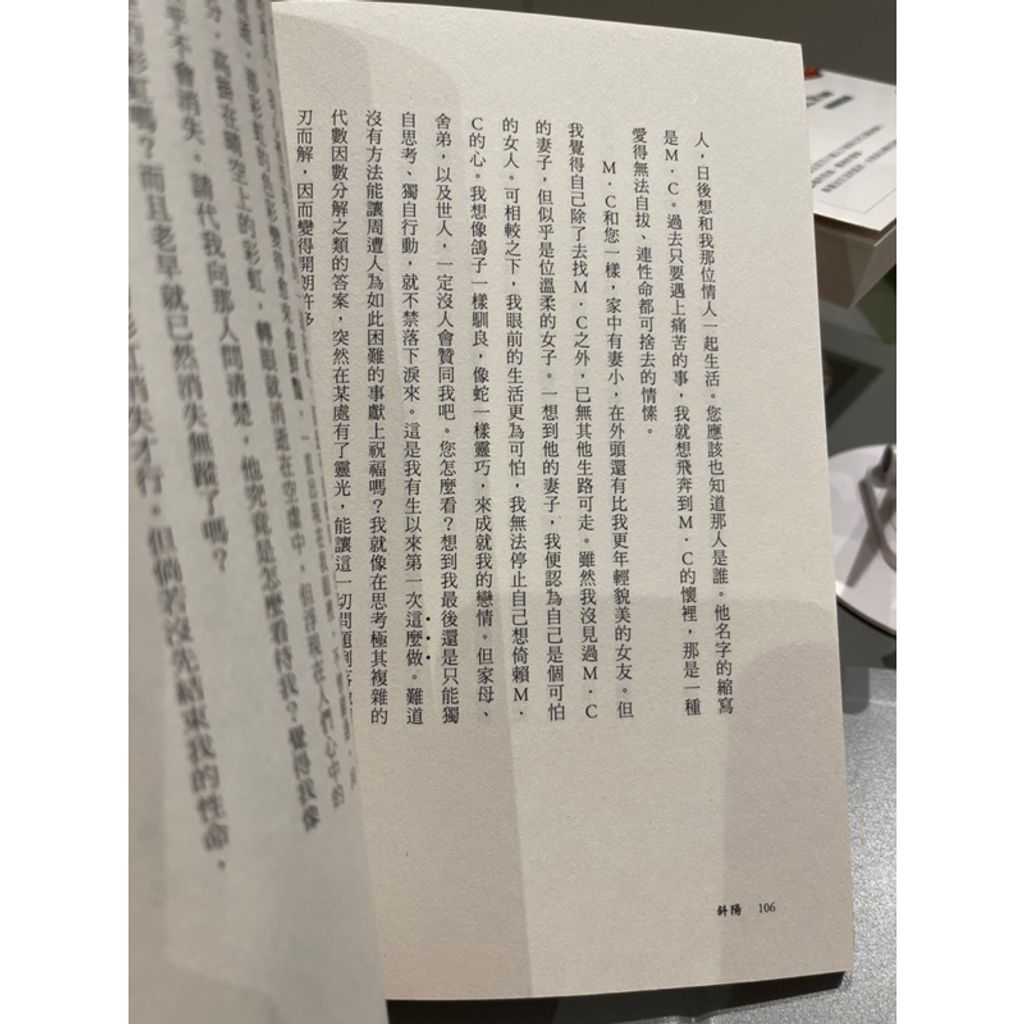 人，日後想和我那位情人一起生活。您應該也知道那人是誰。他名字的縮寫
是M·C。過去只要遇上痛苦的事，我就想飛奔到M·C的懷裡，那是一種
愛得無法自拔、連性命都可捨去的情愫。
M·C和您一樣，家中有妻小，在外頭還有比我更年輕貌美的女友。但
我覺得自己除了去找M·C之外，已無其他生路可走。雖然我沒見過M·C
的妻子，但似乎是位溫柔的女子。一想到他的妻子，我便認為自己是個可怕
的女人。可相較之下，我眼前的生活更為可怕，我無法停止自己想倚賴M·
C的心。我想像鴿子一樣馴良，像蛇一樣靈巧，來成就我的戀情。但家母、
舍弟，以及世人，一定沒人會贊同我吧。您怎麼看？想到我最後還是只能獨
自思考、獨自行動，就不禁落下淚來。這是我有生以來第一次這麼做。難道
沒有方法能讓周遭人為如此困難的事獻上祝福嗎？我就像在思考極其複雜的
代數因數分解之類的答案，突然在某處有了靈光，能讓這一切問題
刃而解，因而變得開朗許多
斜陽 106
高掛在晴空上的彩虹，轉眼就消逝在空虛中，但浮現在人們心中的
不會消失。請代我向那人問清楚，他究竟是怎麼看待我？覺得我像
彩虹嗎？而且老早就已然消失無蹤了嗎？
消失才行。但倘若沒先結束我的性命，